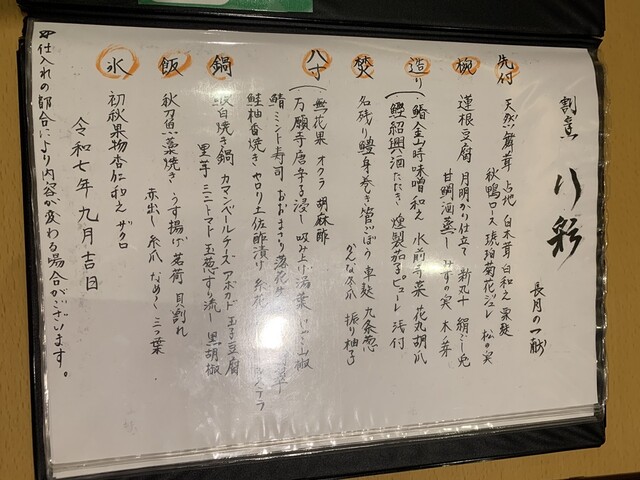 割烹 八彩
長月の一献
先付 天然舞茸 占地 白木茸 白和え 栗麩
秋鴨ロース 琥珀菊花ジュレ 松の実
椀 蓮根豆腐 月明かり仕立て 新丸十 絹ごし兎
甘鯛酒蒸し みずの実 木の芽
造り 鰆金山時味噌和え 水前寺菜 花丸胡瓜
鰹紹興酒たたき 燻製茄子ピューレ 浅付
焚 名残り鱧身巻き 管ごぼう 車麩 九条葱
かんな冬瓜 振り柚子
八寸 無花果 オクラ 胡麻酢
万願寺唐辛子浸し 汲み上げ湯葉 山椒
鯖ミント寿司 おおまさり落花生
鮭柚香焼き ヤロリ土佐酢漬け 糸花 カステラ
鍋 白焼き鍋 カマンベールチーズ アボカド 玉子豆腐
里芋 ミニトマト 玉葱すり流し 黒胡椒
飯 秋刀魚藁焼き うす揚げ 茗荷 貝割れ
赤出し 糸爪 なめこ 三つ葉
氷 初秋果物杏仁和え ザクロ
令和七年 九月吉日
仕入れの都合により内容が変わる場合がございます。